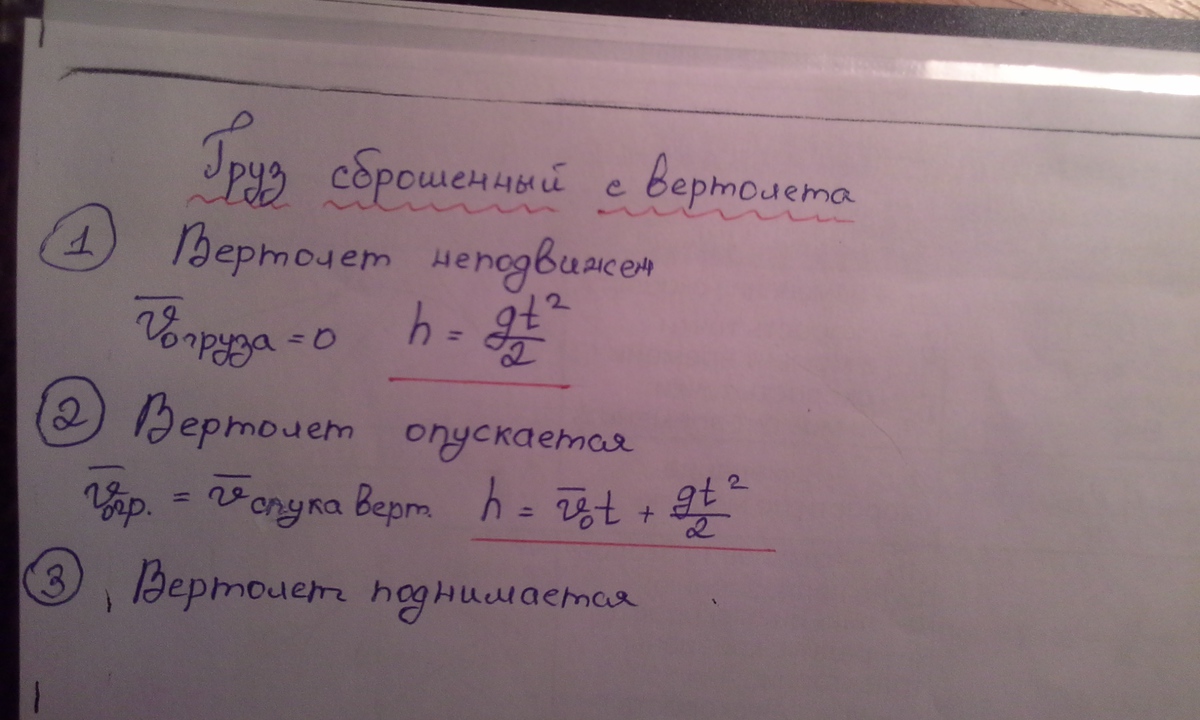 Груз сброшенный с вертолета
1 Вертолет неподвижен
v̅₀груза = 0 h = gt²/2
2 Вертолет опускается
v̅₀гр. = v̅спука верт. h = v̅₀t + gt²/2
3 Вертолет поднимается